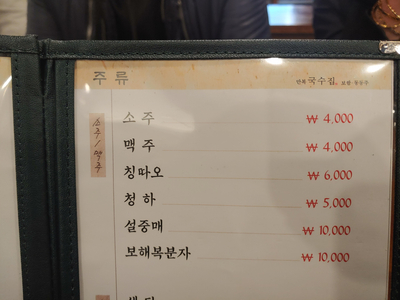 주 류
국수집
소주/맥주
소 주 ₩ 4,000
맥 주 ₩ 4,000
칭따오 ₩ 6,000
청 하 ₩ 5,000
설중매 ₩ 10,000
보해복분자 ₩ 10,000